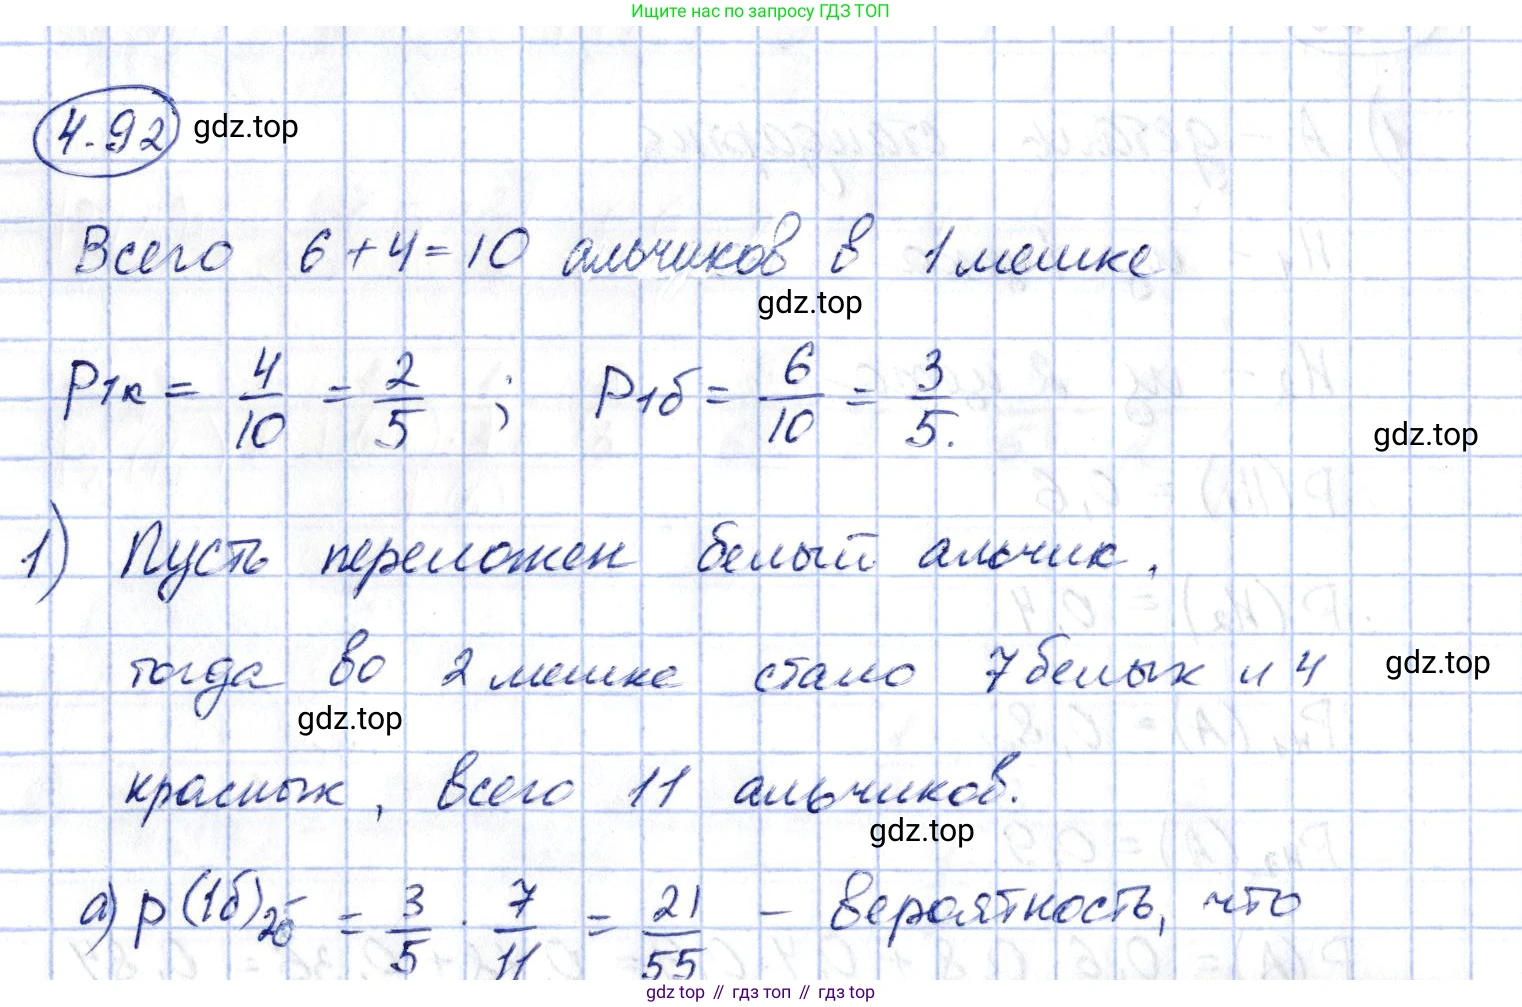 Ищите нас по запросу ГДЗ ТОП
4.92 gdz.top
Всего 6 + 4 = 10 альчиков в 1 мешке
gdz.top
P1к = 4/10 = 2/5 ; P1б = 6/10 = 3/5.
gdz.top
1) Пусть переложен белый альчик,
тогда во 2 мешке стало 7 белых и 4
gdz.top
gdz.top
красных, всего 11 альчиков.
gdz.top
а) p(1б)2б = 3/5 · 7/11 = 21/55 – вероятность, что
gdz top // гдз топ // гдз top